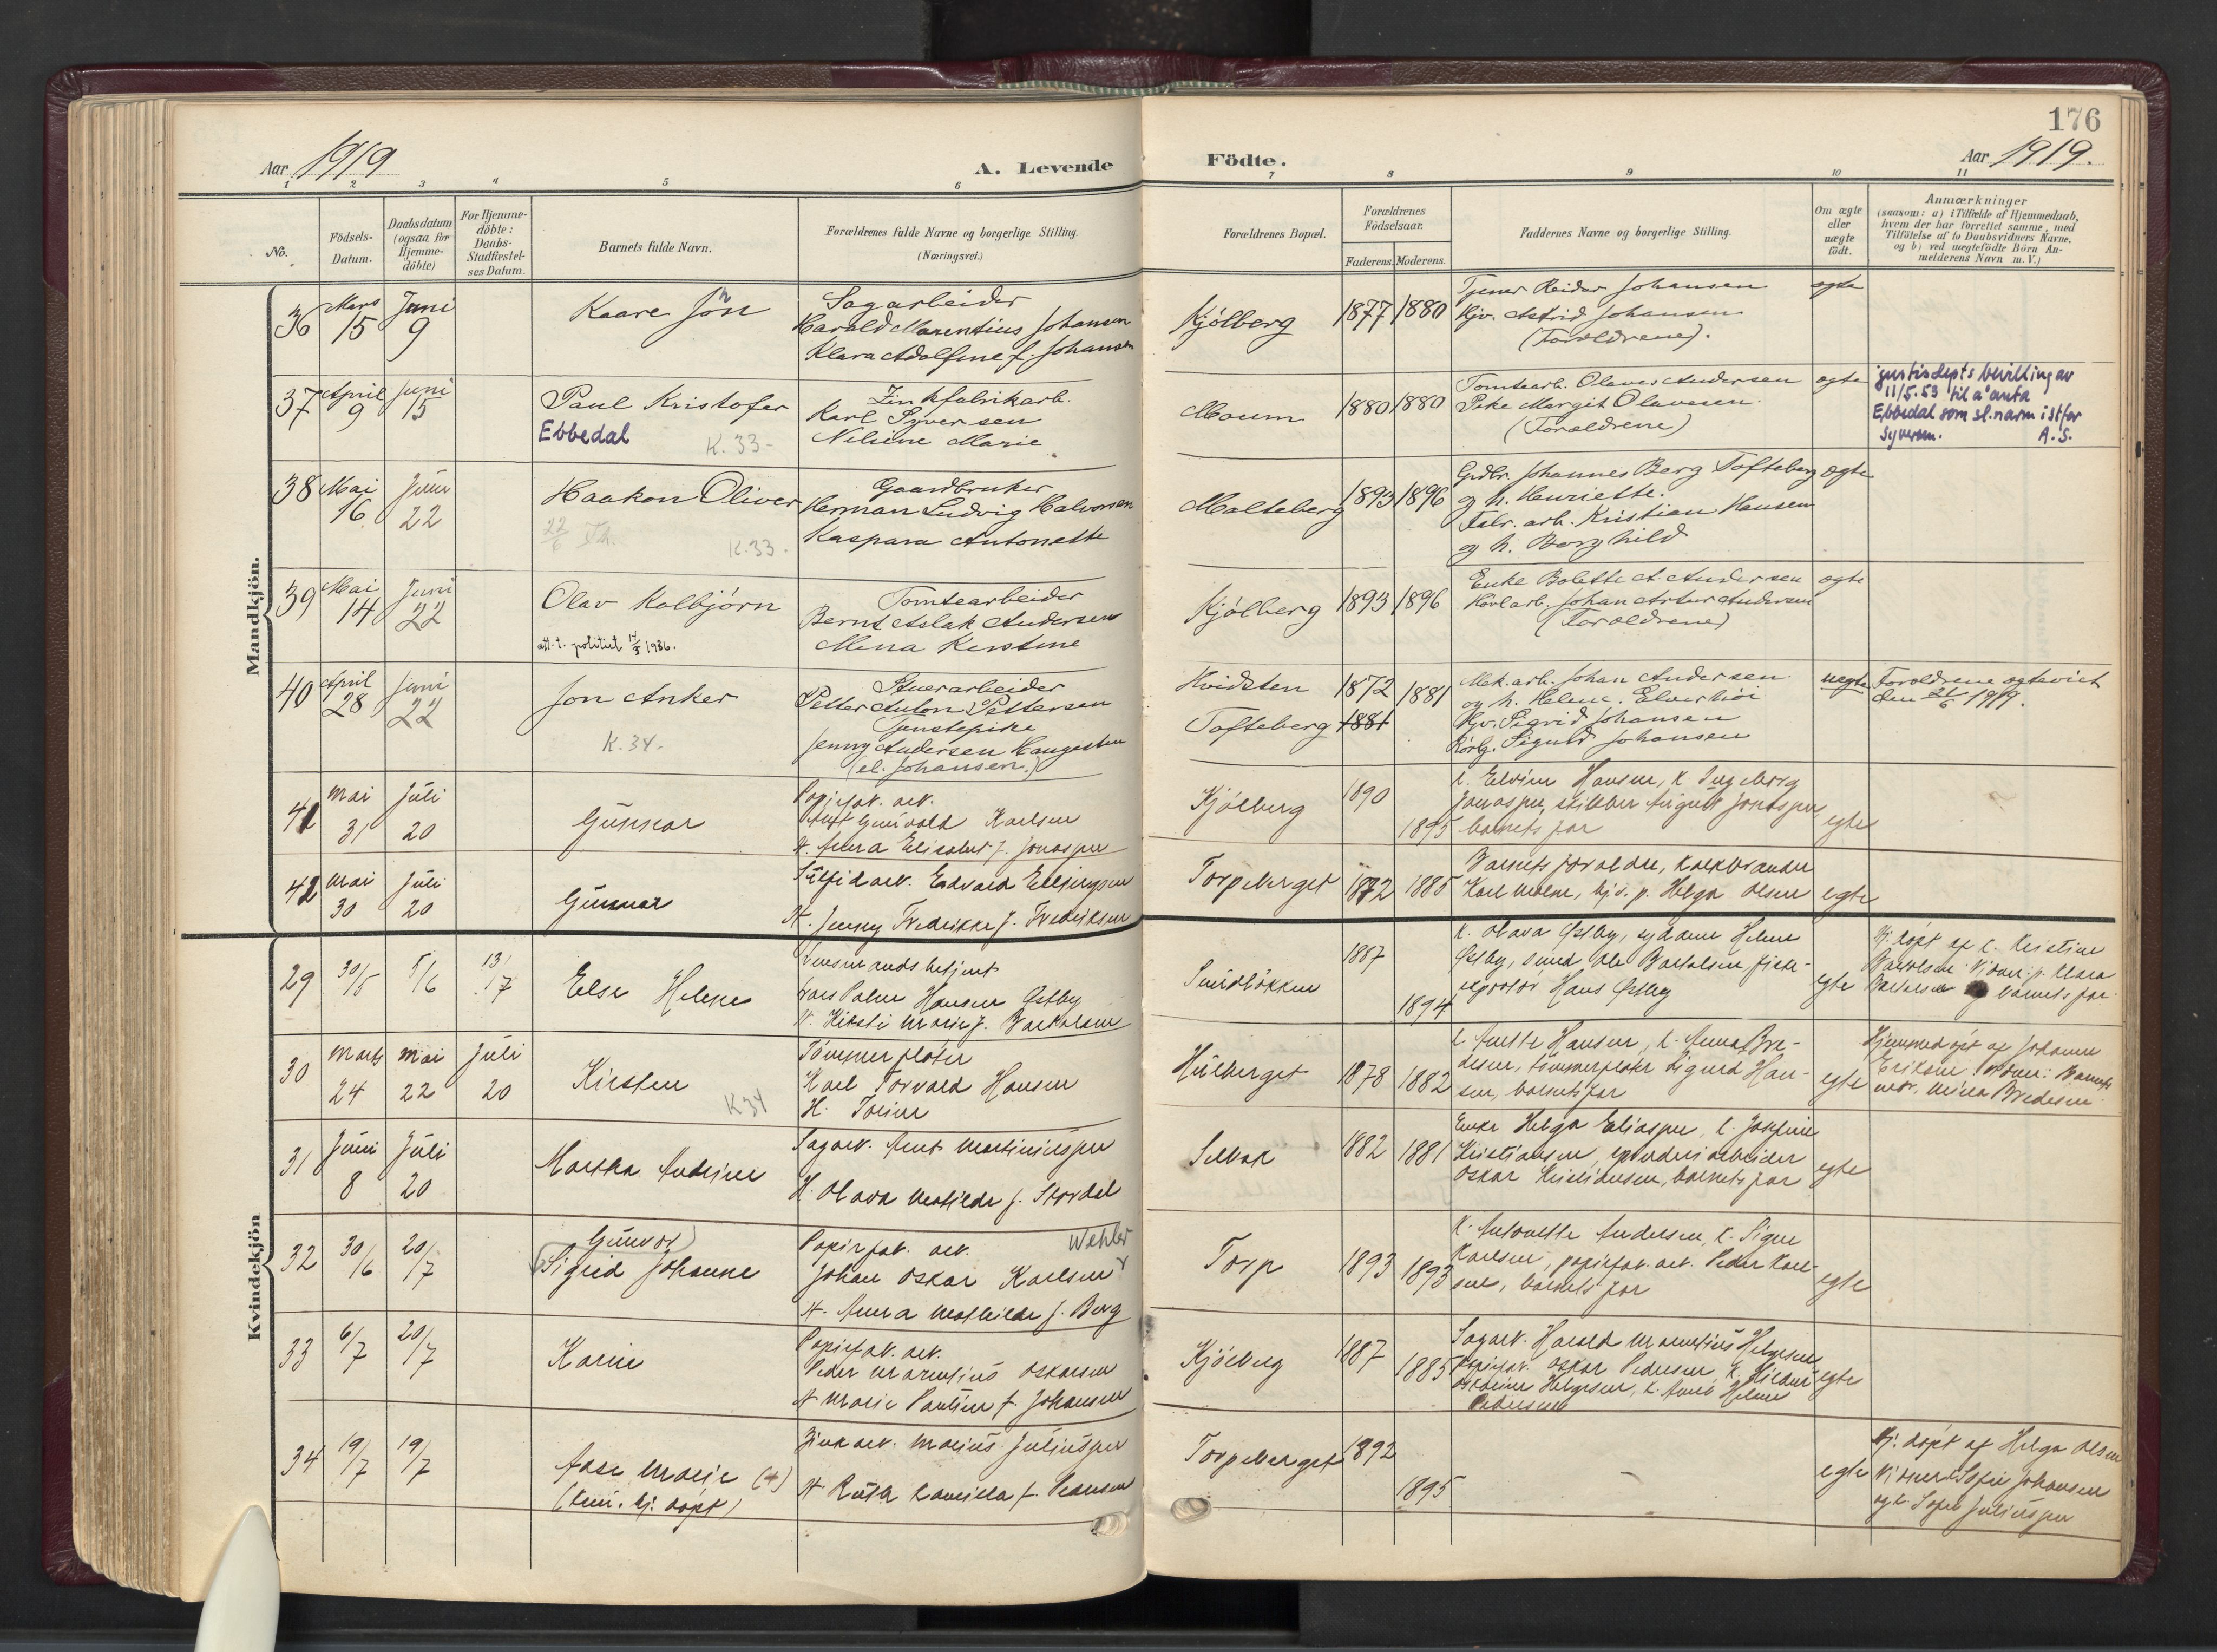 176
Aar 1919
A. Levende
Födte.
Aar 1919.
1 2 3 4 5 6 7 8 9 10 11
No.
Födsels-
Datum.
Daabsdatum
(ogsaa for
Hjemme-
döbte)
For Hjemme-
döbte:
Daabs-
Stadfæstel-
ses Datum.
Barnets fulde Navn.
Forældrenes fulde Navne og borgerlige Stilling.
(Næringsvei.)
Forældrenes Bopæl.
Forældrenes
Födselsaar.
Faderens. Moderens.
Faddernes Navne og borgerlige Stilling.
Om ægte
eller
uægte
födt.
Anmærkninger
(saasom: a) i Tilfælde af Hjemmedaab,
hvem der har forrettet samme, med
Tilföielse af to Daabsvidners Navne,
og b) ved uægtefödte Börn An-
melderens Navn m. V.)
Mandkjön.
36
Mars
15
Juni
9
Kaare Jon
Sagarbeider
Harald Marentius Johansen
Klara Adolfine f. Johansen
Kjølberg
1877 1880
Tjener Reidar Johansen
Hjv. Astrid Johansen
(Foreldrene).
egte
37
April
9
Juni
15
Paul Kristofer
Ebbedal
K. 33-
Zinkfabrikarb.
Karl Syversen
Nilsine Marie
Moum
1880 1880
Tomtearb. Olaves Andersen
Pike Margit Olavesen.
(Foreldrene)
egte
justisdepts bevilling av
11/5.53 til å anta
Ebbedal som sl.navn istfor
Syversen. A.S.
38
Mai
16
Juni
22
Haakon Oliver
22/6
K.33.
Gaardbruker
Herman Ludvig Halvorsen
Kaspara Antonette
Malteberg
1893 1896
Grdbr. Johannes Berg Tofteberg
og h. Henriette.
Fabr. arb. Kristian Hansen
og h. Borghild
egte
39
Mai
14
Juni
22
Olav Kolbjørn
att. t. politiet 14/3 1936.
Tomtearbeider
Bernt Aslak Andersen
Mina Kirstine
Kjølberg
1893 1896
Enke Bolette A. Andersen
Høvlarb. Johan Artur Andersen
(Foreldrene)
egte
40
April
28
Juni
22
Jon Anker
K. 34.
Stuerarbeider
Petter Anton Pettersen
Tjenestepike
Jenny Andersen Haugesten
(el. Johansen.)
Hvidsten
Tofteberg
1872 1881
1881
Mek.arb. Johan Andersen
og h. Helene. Elverhøi
Hjv. Sigrid Johansen
Rørlg. Sigurd Johansen
uegte
Foreldrene egteviet
den 21/6 1919.
41
Mai
31
Juli
20
Gunnar
Papirfab. arb.
Gunvald Karlsen
H. Anna Elisabet f. Jonassen
Kjølberg
1890
1895
E. Elvine Hansen, K. Ingeborg
Jonassen, skibber August Jonassen,
barnets far
egte
42
Mai
30
Juli
20
Gunnar
Sulfidarb. Edvard Ellingsen
H. Jenny Fredrikke f. Fredriksen
Torpeberget
1872 1885
Barnets foreldre, kalkbrander
Karl Melme, hj. v. p. Helga Olsen
egte
Kvindekjön
29
30/5
5/6
13/7
Else Helene
Lensmandsbetjent
Lars Palm Hansen Østby
H. Kirsti Marie f. Bartolsen
Sundløkken
1887
1894
K. Olava Østby, sydame Helene
Østby, smed Ole Bartolsen, fisk-
exportør Hans Østby
egte
Hj. døpt af E. Kristine
Bartolsen. Vidner: p. Klara
Bartolsen og barnets far.
30
Marts
24
Mai
22
Juli
20
Kirsten
K 34
Tømmerfløter
Karl Torvald Hansen
H. Torine
Hulberget
1878 1882
E. Anette Hansen, E. Anna Bre-
desen, tømmerfløter Sigurd Han-
sen, barnets far
egte
Hjemmedøpt af Johanne
Eriksen. Vidner: Barnets
mor. Mina Bredesen.
31
Juni
8
Juli
20
Martha Andrine
Sagarb. Anut Martiniussen
H. Olava Matilde f. Stordal
Selbak
1882 1881
Enke Helga Eliassen, E. Josefine
Kristiansen, arbeider
Oskar Kristiansen, barnets far
egte
32
30/6
20/7
Gunvor
Sigrid Johanne
Papirfab. arb. Wehler
Johan Oskar Karlsen
H. Anna Mathilde f. Berg
Torp
1893 1893
K. Antonette Andersen, E. Signe
Karlsen, papirfab. arb. Peder Karl-
sen, barnets far
egte
33
6/7
20/7
Karin
Papirfab. arb.
Peder Marentius Oskarsen
H. Marie Pauline f. Johansen
Kjølberg
1887
1885
Sagarb. Harald Marentius Helgesen,
Papirfab. Oskar Pedersen, K.
Helgesen, K. Anna Helene
Pedersen
egte
34
19/7
19/7
Aase Marie (+)
(Kun. hj. døpt)
Zinkarb. Marius Juliussen
H. Ruth Kamilla f. Pedersen
Torpeberget
1892
1895
egte
Hj. døpt af Helga Olsen
Vidner: Sofie Johansen
og E. Sofie Juliussen